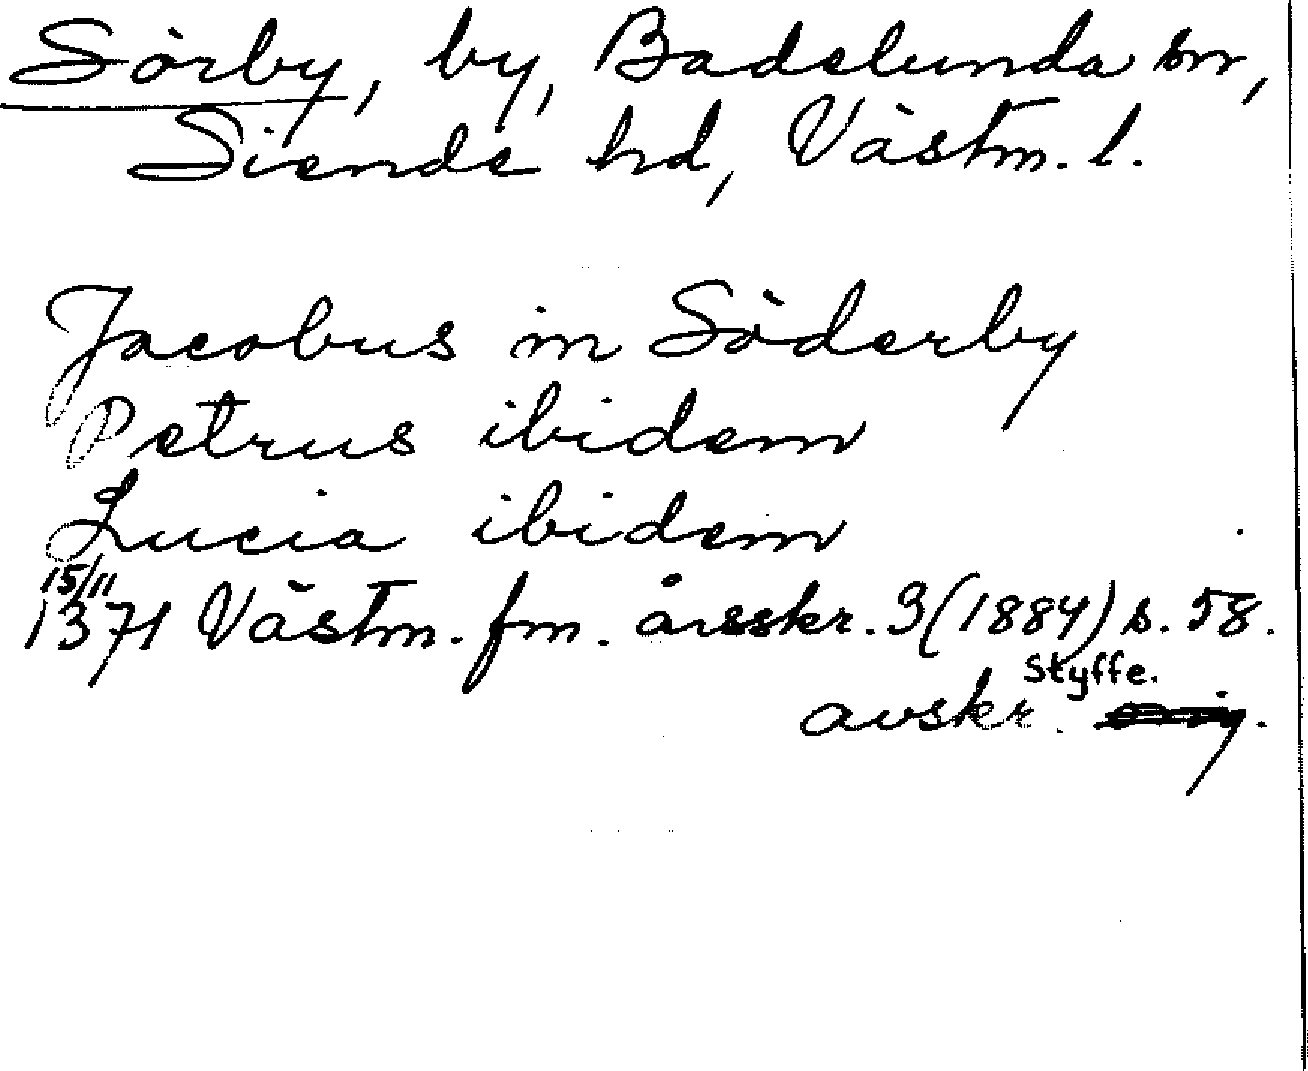 Sörby, by, Badelunda sn,
Siende hd, Västm. l.
Jacobus in Söderby
Petrus ibidem
Lucia ibidem
15/11
1371 Västm. fm. årsskr. 3 (1884) s. 58.
Styffe.
avskr.